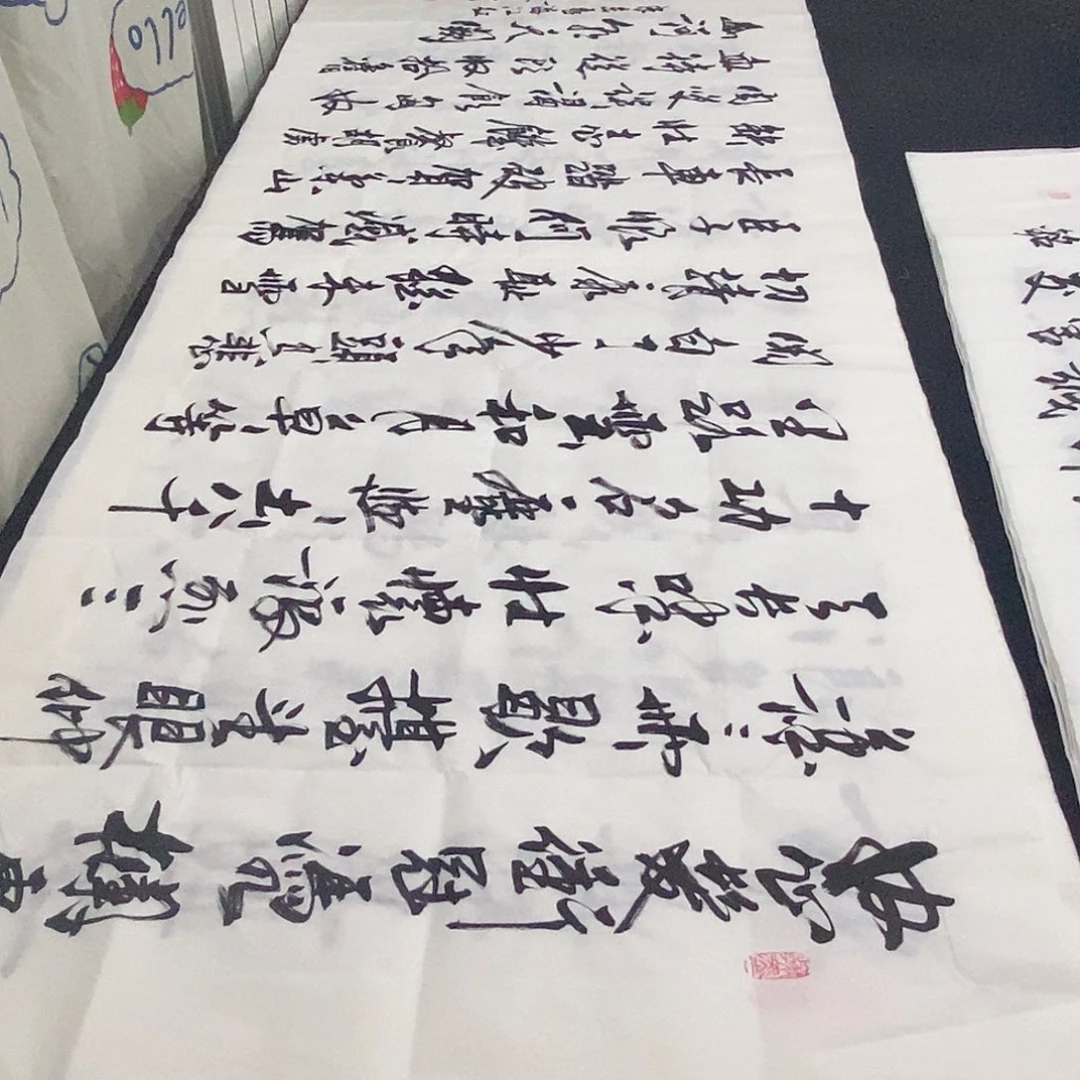 怒髮衝冠憑欄
瀟瀟雨歇擡望眼仰
天長嘯壯懷激烈三
十功名塵與土八千
里路雲和月莫等
閑白了少年頭空悲
切靖康恥猶未雪
臣子恨何時滅駕
長車踏破賀蘭山
缺壯志飢餐胡虜
肉笑談渴飲匈奴
血待從頭收拾舊
山河朝天闕
ello